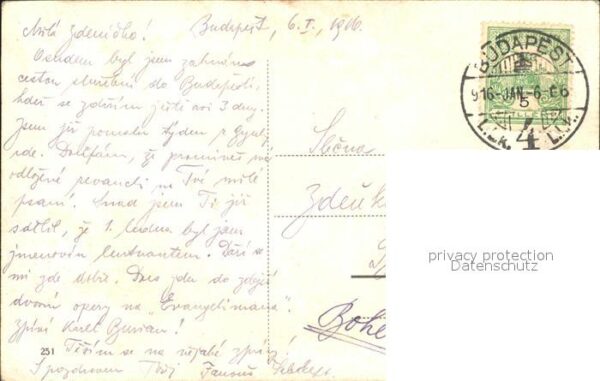 Milá Zdeničko! Budapest, 6.I., 1916.
Osudem byl jsem zahnán
cestou služební do Budapešti,
kdež se zdržím ještě asi 3 dny.
Jsem již pomalu týden z
Doufám, že promineš mi
odložné na Tvé milé
psaní. Snad jsem Ti již
sdělil, že 1. ledna byl jsem
jmenován leutnantem. Daří se
mi zde dobře. Dnes jdu do zdejší
dvorní opery na „Evangelimana“
zpívá Karel Burian!
Těším se na nějaké
S pozdravem Tvůj
251
Slečna
Zdeňk
Bohe
BUDAPEST
916-JAN.-6.
4
privacy protection
Datenschutz